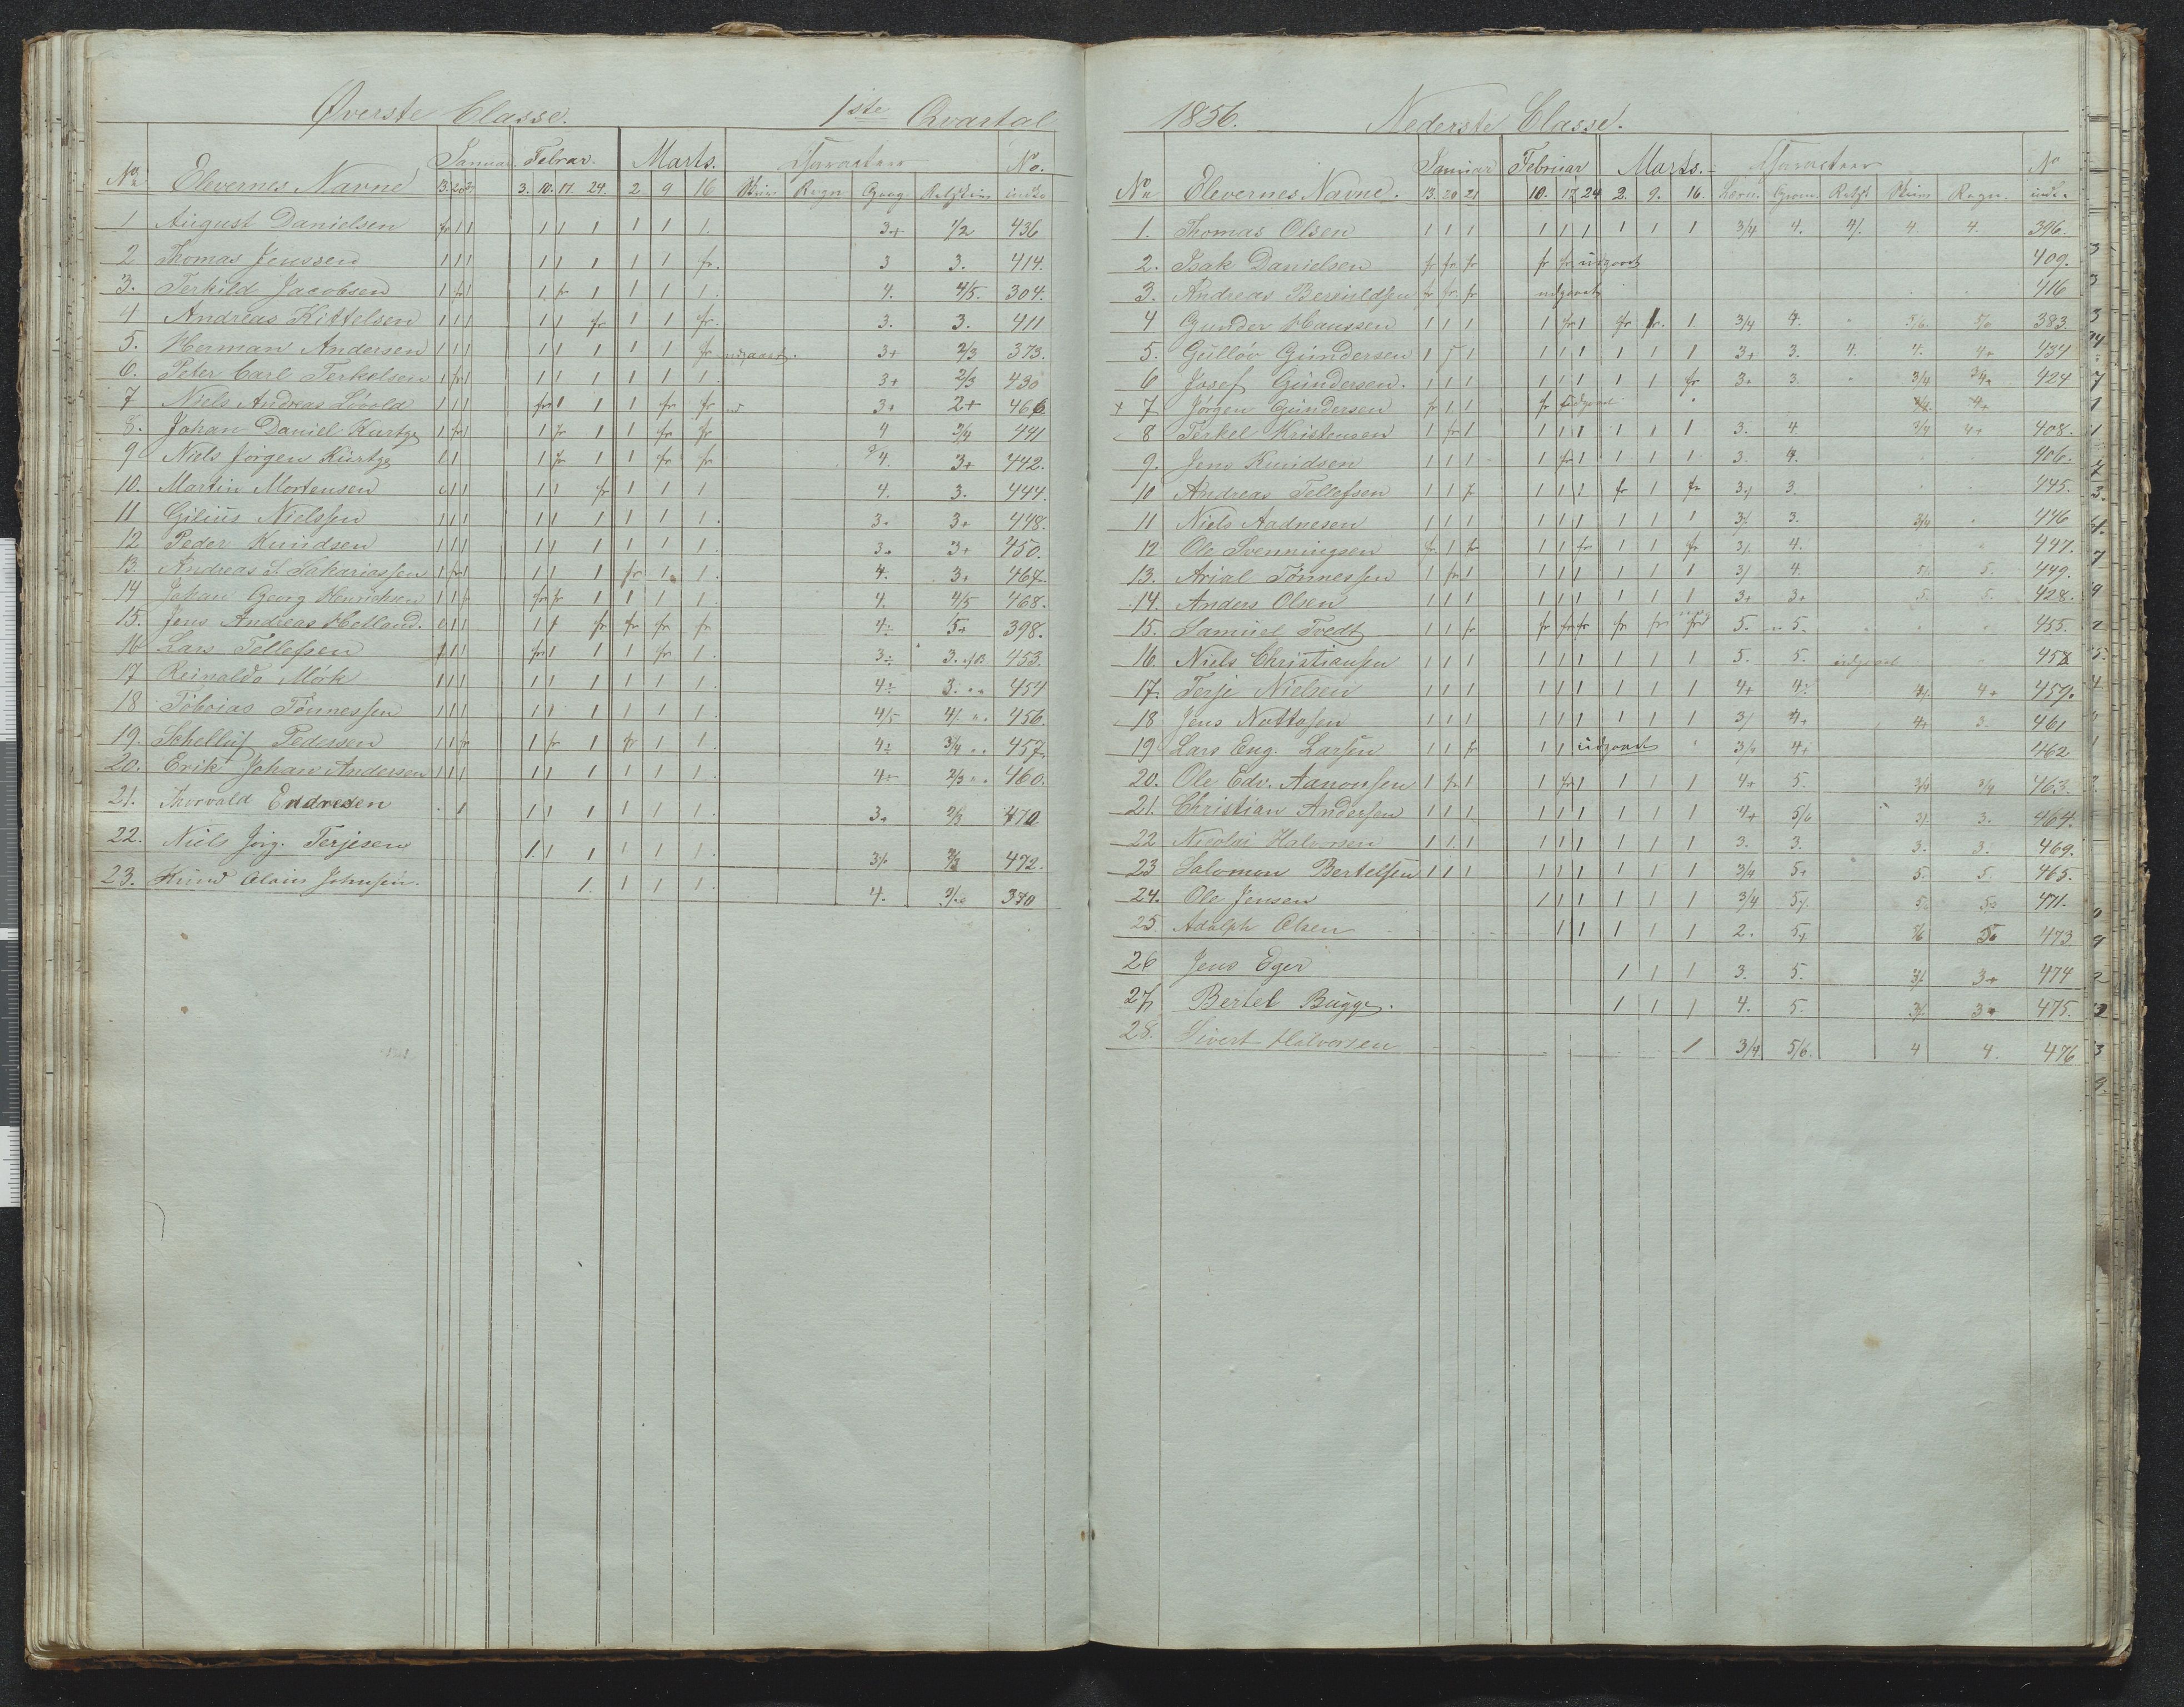 Øverste Classe. 1ste Qvartal
Januar. Februar. Marts. Characteer No.
No. Elevernes Navne 13. 20 3. 10. 17 24. 2 9 16 Skriv. Regn Geog Retskriv. indk.
1 August Danielsen fr 1 1 1 1 1 1 1 1. 3+ 1/2 436
2 Thomas Jenssen 1 1 1 1 1 1 1 1 fr. 3 3. 414.
3. Terkild Jacobsen 1 fr 1 1 fr 1 1 1 1. 4. 4/5. 304.
4 Andreas Kittelsen 1 1 1 1 1 fr 1 1 fr. 3. 3. 411
5. Herman Andersen 1 1 1 1 1 1 1 1 fr udgaaet. 3+ 2/3 373.
6. Peter Carl Terkelsen 1 fr 1 1 1 1 1 1 1. 3+ 2/3 430
7 Niels Andreas Lövold 1 1 1 fr 1 1 1 fr fr ud 3+ 2+ 466
8. Johan Daniel Kurtze 1 fr 1 1 fr 1 1 fr fr 4 3/4 441
9 Niels Jörgen Kürtze 1 1 1 fr 1 1 fr fr 4. 3+ 442.
10. Martin Mortensen 1 1 1 1 fr 1 1 1 4. 3. 444.
11 Gilius Nielssen 1 1 1 1 1 1 1 1 1. 3. 3+ 448.
12 Peder Knudsen 1 1 1 1 1 1 1 1 1. 3. 3+ 450.
13. Andreas S Sakariassen 1 fr 1 1 1 1 fr 1 1. 4. 3. 467.
14 Johan Georg Henrichsen 1 1 fr fr fr 1 1 1 1. 4. 4/5 468.
15. Jens Andreas Helland. 1 1 1 1 fr fr fr fr 4÷ 5+ 398.
16 Lars Tellefsen 1 1 1 fr 1 1 1 fr 1. 3÷ 3. 453.
17 Reinaldo Mörk 1 1 1 1 1 1 1 1 1. 4÷ 3. " " 454
18 Tobias Tönnessen 1 1 1 1 1 1 1 1 1. 4/5 4/. " " 456.
19. Schelluf Pedersen 1 1 fr 1 fr 1 fr 1 1 4÷ 3/4 " " 457.
20. Erik Johan Andersen 1 1 1 1 1 1 1 1 1. 4÷ 2/3 " " 460.
21. Thorvald Endresen . 1 1 1 1 1 1 1. 3+ 2/3 470
22. Niels Jörg. Terjesen 1. 1 1 1 1 1. 3/. 472.
23. Knud Olaus Johnsen. 1. 1 1 1. 4. 370
1856. Nederste Classe.
Januar Februar Marts. Characteer No
No Elevernes Navne. 13. 20 21 10. 17 24 2. 9. 16. Regn. indk.
1. Thomas Olsen 1 1 1 1 1 1 1 1 1 3/4 4. 4/. 4 4. 396.
2. Isak Danielsen fr fr fr fr fr udgaaet 409.
3. Andreas Berentdsen fr fr. fr udgaaet 416
4 Gunder Hanssen 1 1 1 1 fr 1 fr fr. 1. 3/4 4. " 5/6. 5/6 383.
5. Gülløv Gündersen 1 1 1 1 1 1 1 1 3+ 3. 4. 4. 4+ 434
6 Josef Gündersen. 1 1 1 1 1 1 1 1 fr 3. 3. " 3/4 3/4. 424
+ 7 Jörgen Gündersen fr 1 1 fr udgaaet 4/. 4+
8 Terkel Kristensen 1 fr 1 1 1 1 1 1 1 3. 4 3/4 4+ 408.
9. Jens Knudsen 1 1 1 1 fr 1 1 1 1 3. 4. 406.
10 Andreas Tellefsen 1 1 fr 1 1 1 fr 1 fr 3/. 3. 445.
11 Niels Aadnesen 1 1 1 1 1 1 1 1 1 3/. 3. 3/4 " 446
12 Ole Svenningsen fr. 1 fr 1 1 fr 1 1 fr 3/. 4. 447.
13. Arial Tönnessen 1 fr 1 1 1 1 1 1 1 3/ 4. 5/. 5. 449.
14. Anders Olsen 1 1 1 1 1 1 1 1 1 3+ 3+ 5. 5. 428.
15. Samuel Tvedt 1 1 fr fr fr fr fr fr 5. " 5. 455.
16. Niels Christiansen 1 1 1 1 1 1 1 1 1 5. 5. udgaaet 458
17. Terje Nielsen 1 1 1 1 1 1 1 1 1 4+ 4÷ 4/. 4+ 459.
18 Jens Nottosen 1 1 1 1 1 1 1 1 1 3/ 4+ 4+ 3. 461
19 Lars Eng. Larsen 1 1 fr 1 1 udgaaet 3/4 4+ 462
20. Ole Edv. Aanonsen 1 fr 1 1 fr 1 1 1 1 4+ 5. 3/4 3/4 463.
21. Christian Andersen 1 1 1 1 1 1 1 1 1 4+ 5/6 3/. 3. 464.
22 Nicolai Halvorsen 1 1 1 1 1 1 1 1 1 3. 3. 3. 3. 469.
23 Salomon Bertelsen 1 1 1 1 1 1 1 1 1 3/4 5+ 5. 5. 465.
24. Ole Jensen 1 1 1 1 1 1 3/4 5/. 471.
25. Adolph Olsen 1 1 1 1 1 2. 5+ 473.
26 Jens Eger 1 1 1 3. 5. 3/. 3+ 474
27 Bertel Bugge. 1 1 1 4. 5. 3/. 3+ 475.
28. Sivert Halvorsen 1 3/4 5/6. 4 4. 476